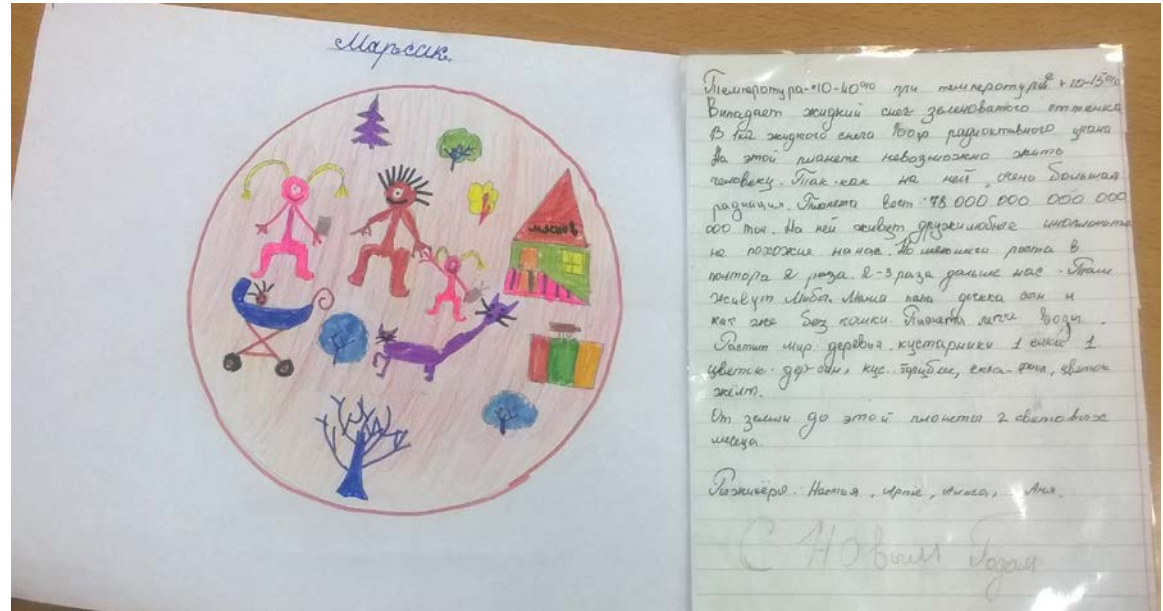 Марьсик
МАГАЗ
Температура-+10-40º/º при температуре +10-15º/º
Випадает жидкий снег зеленоватого оттенка
В 1кг жидкого снега 100гр радиоктивного урана
На этой планете невозможно жить
человеку. Так-как на ней, очено большая
радиация. Планета весит 78 000 000 000 000
000 тон. На ней живут дружилюбные инопланет
не похожие на нас. Но меншего роста в
полтора 2 раза. 2-3 раза дальше нас. Там
живут Мама папа дочка сын и
как же без кошки. Планета легче воды.
Растит мир: деревья кустарники 1 елка 1
цветок. дер син, кус. голубые, елка-фиол, цветок
жёлт.
От земли до этой планеты 2 световых
месеца.
Настья, Аня.
С Новым Годом